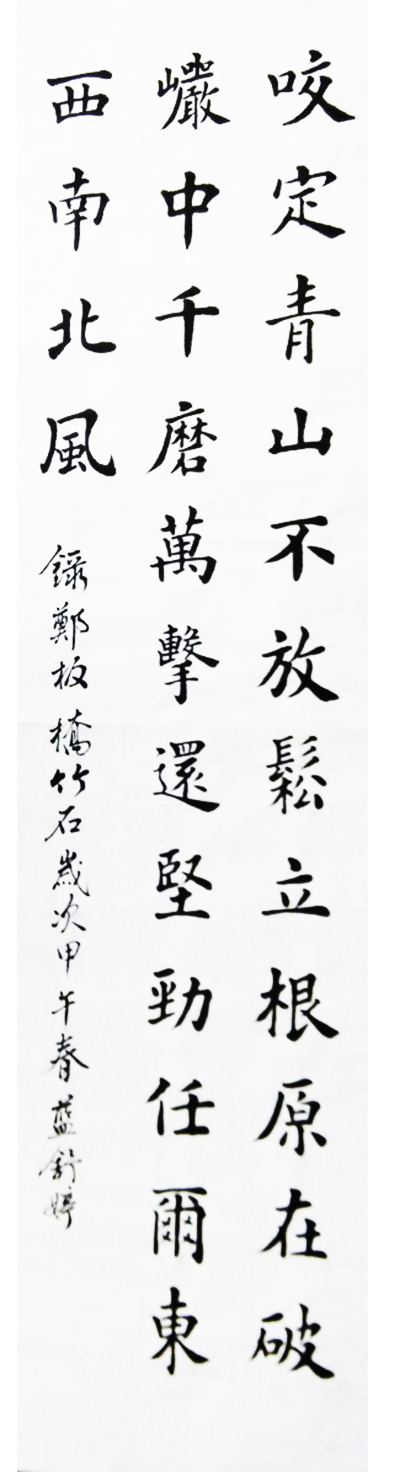 咬定青山不放鬆立根原在破
巗中千磨萬擊還堅勁任爾東
西南北風
錄鄭板橋竹石歲次甲午春藍舒婷